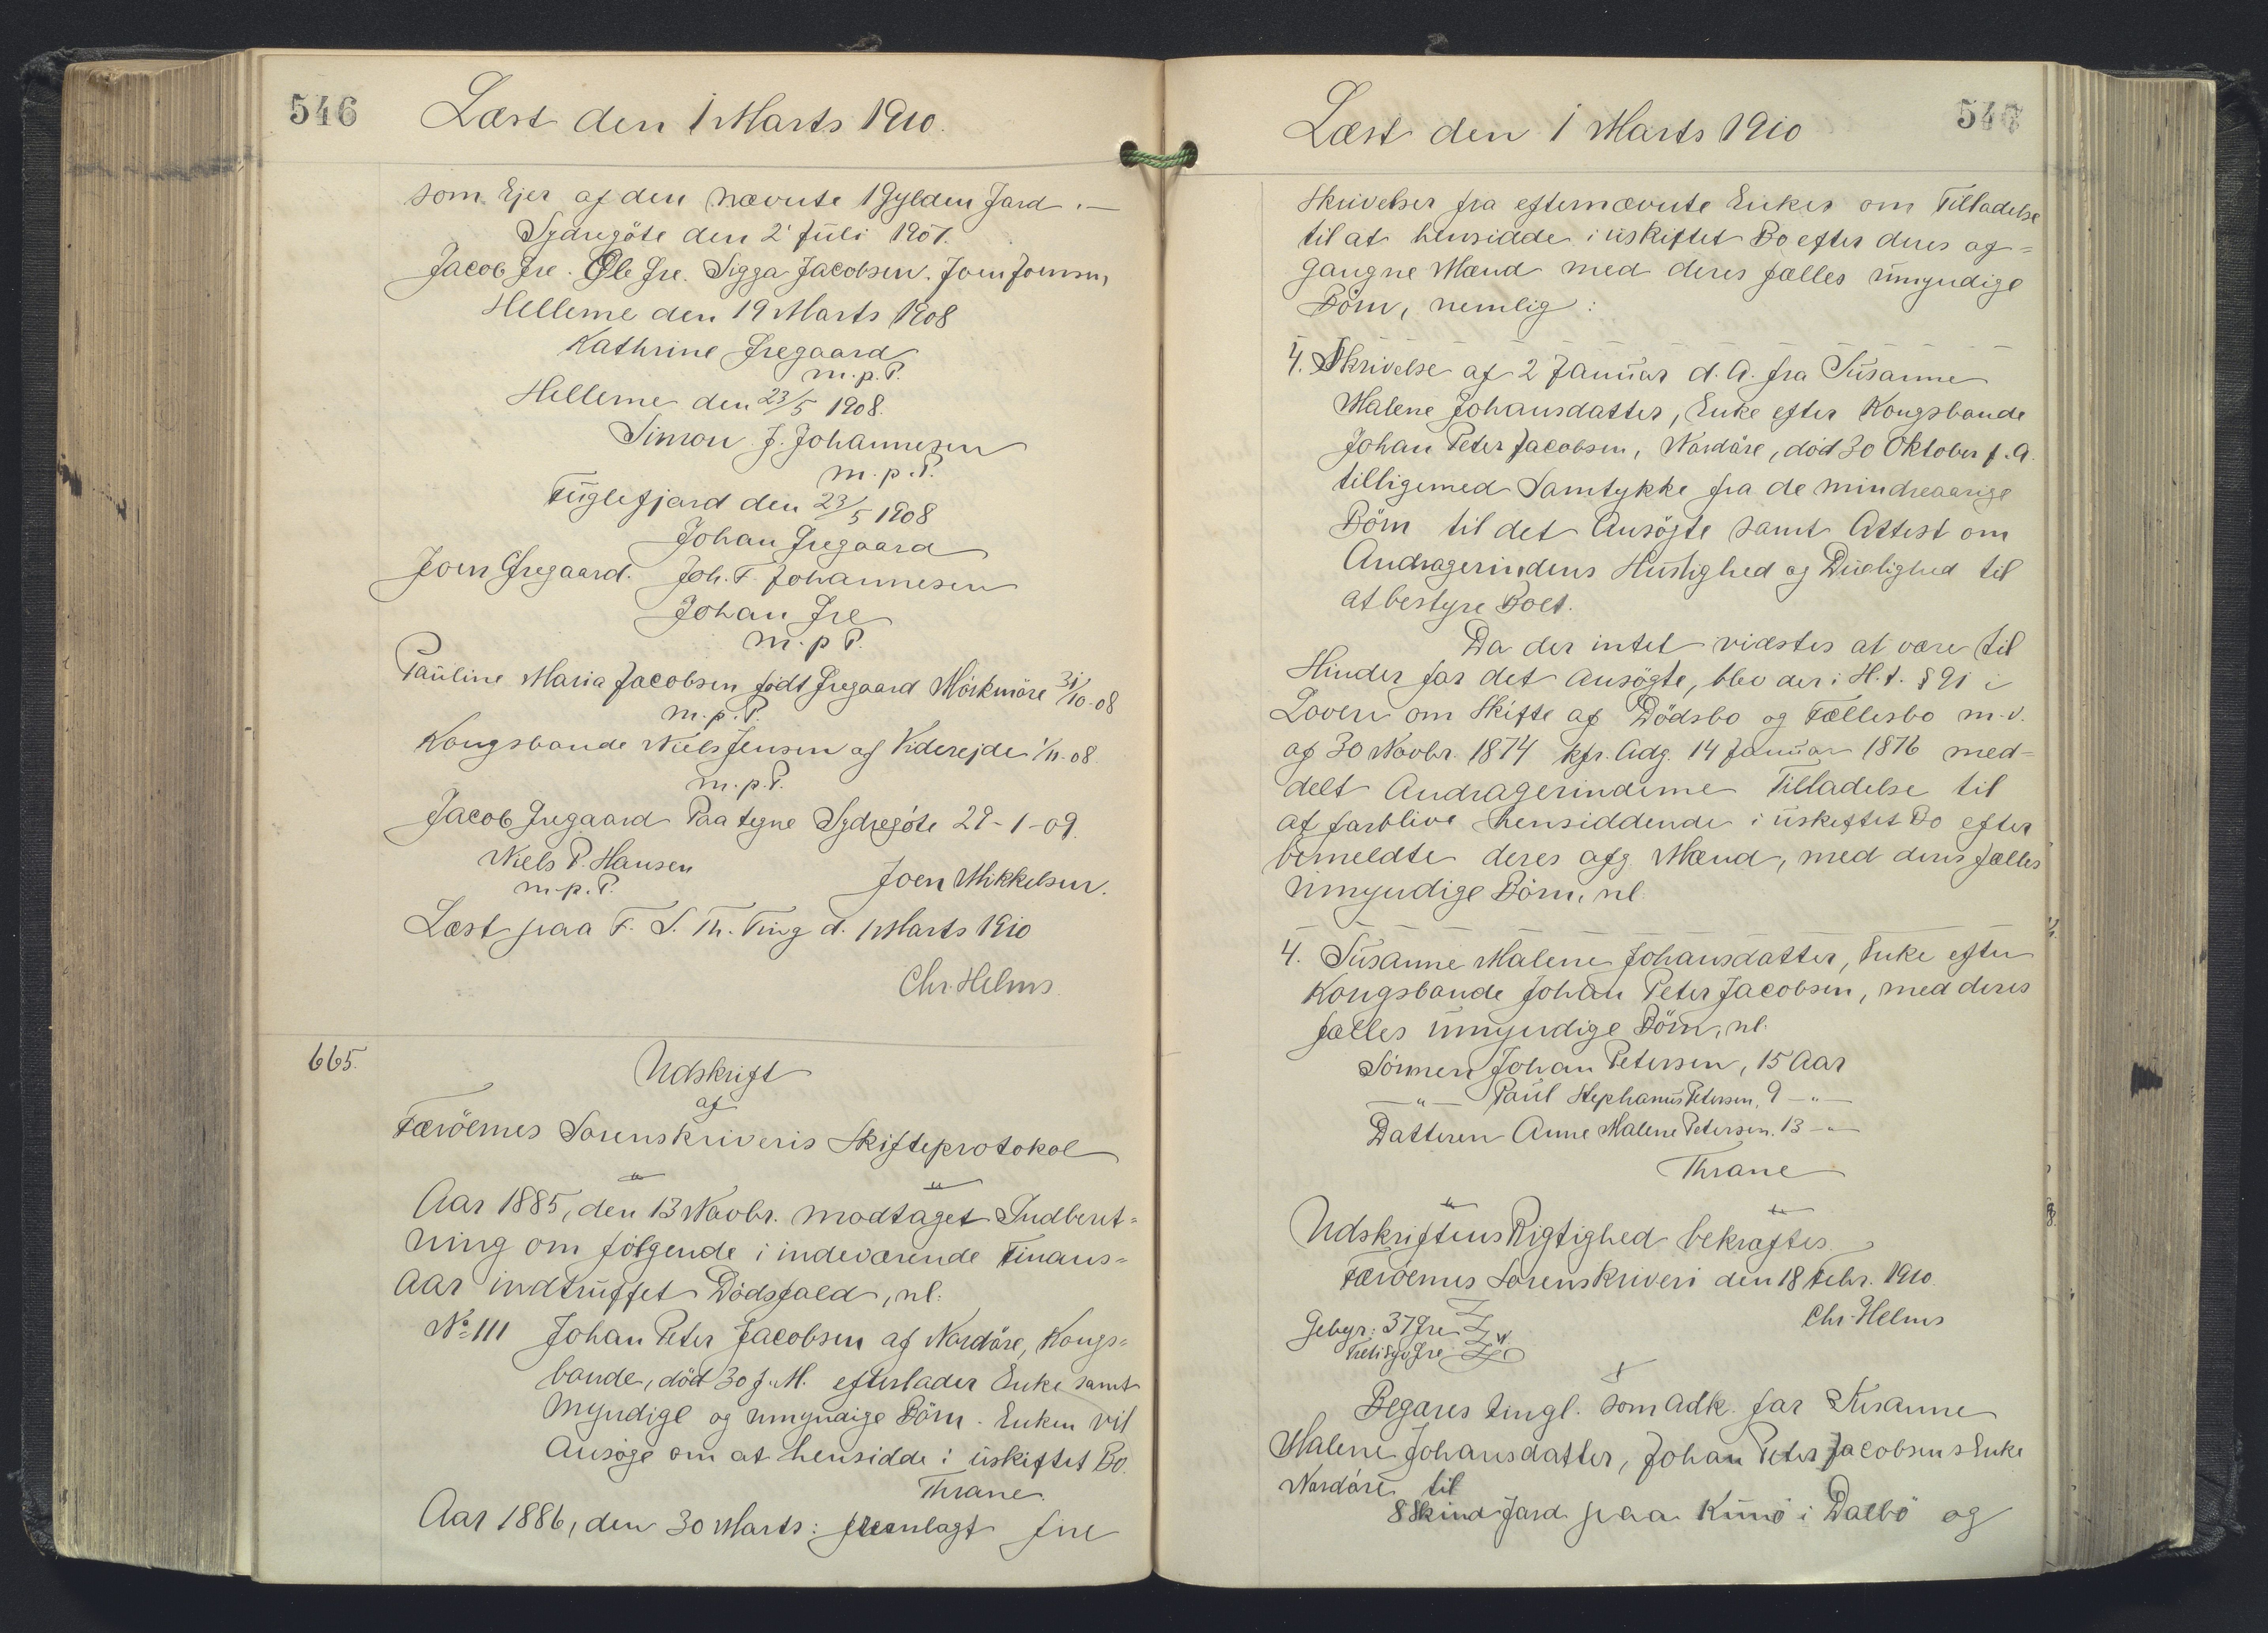 546
Læst den 1 Marts 1910.
som Ejer af den nævnte 1 Gylden Jord .—
Sydregöte den 2' Juli 1907.
Jacob Jre. Ole Jre. Sigga Jacobsen. Joen Joensen,
Hellerne den 19 Marts 1908
Kathrine Jregaard
m.p.P.
Hellerne den 23/5 1908.
Simon J. Johannesen
m.p.P.
Fuglefjord den 23/5 1908
Johan Jregaard
Joen Jregaard. Joh. F. Johannesen
Johan Jre
m.p P.
Pauline Maria Jacobsen född Jregaard Mörkmöre 31/10-08
m.p.P.
Kongsbonde Niels Jensen af Viderejde 1/11-08.
m.p.P.
Jacob Jregaard Paa tegne Sydregöte 29-1-09.
Niels P. Hansen
m.p.P.
Joen Mikkelsen.
Læst paa F. S. Th. Ting d. 1 Marts 1910
Chr. Helms.
665.
Udskrift
af
Færöernes Sorenskriveris Skifteprotokol
Aar 1885, den 13 Novbr. modtaget Indberet-
ning om fölgende i indeværende Finans-
aar indtruffet Dödsfald, nl:
No 111 Johan Peter Jacobsen af Nordöre, Kongs-
bonde, död 30 f.M. efterlader Enke samt
Myndige og umyndige Börn. Enken vil
Ansöge om at hensidde i uskiftet Bo.
Thrane.
Aar 1886, den 30 Marts: fremlagt fire
547
Læst den 1 Marts 1910
Skrivelser fra efternævnte Enker om Tilladelse
til at hensidde i uskiftet Bo efter deres af-
gangne Mænd med deres fælles umyndige
Börn, nemlig:
4. Skrivelse af 2 Januar d.A. fra Susanne
Malene Johansdatter, Enke efter Kongsbonde
Johan Peter Jacobsen, Nordöre, död 30 Oktober f.A.
tilligemed Samtykke fra de mindreaarige
Börn til det Ansögte samt Attest om
Andragerindens Huslighed og Duelighed til
at bestyre Boet.
Da der intet vidstes at være til
Hinder for det ansögte, blev der i H.t. § 91 i
Loven om Skifte af Dödsbo og Fællesbo m.v.
af 30 Novbr. 1874 kfr. Adg. 14 Januar 1876 med-
delt Andragerinderne Tilladelse til
at forblive hensiddende i uskiftet Bo efter
bemeldte deres afg. Mænd, med deres fælles
Umyndige Börn, nl:
4. Susanne Malene Johansdatter, Enke efter
Kongsbonde Johan Peter Jacobsen, med deres
fælles umyndige Börn, nl:
Sönnen Johan Petersen, 15 Aar
—"— Paul Stephanus Petersen, 9 —"—
Datteren Anne Malene Petersen. 13 —"—
Thrane
Udskriftens Rigtighed bekræftes.
Færöernes Sorenskriveri den 18 Febr. 1910.
Chr. Helms
Gebyr: 37 Jre
Tretisyv Jre
Begæres tingl. som adk. for Susanne
Malene Johansdatter, Johan Peter Jacobsens Enke
Nordöre til
8 Skind Jord paa Kunö i Dalbö og